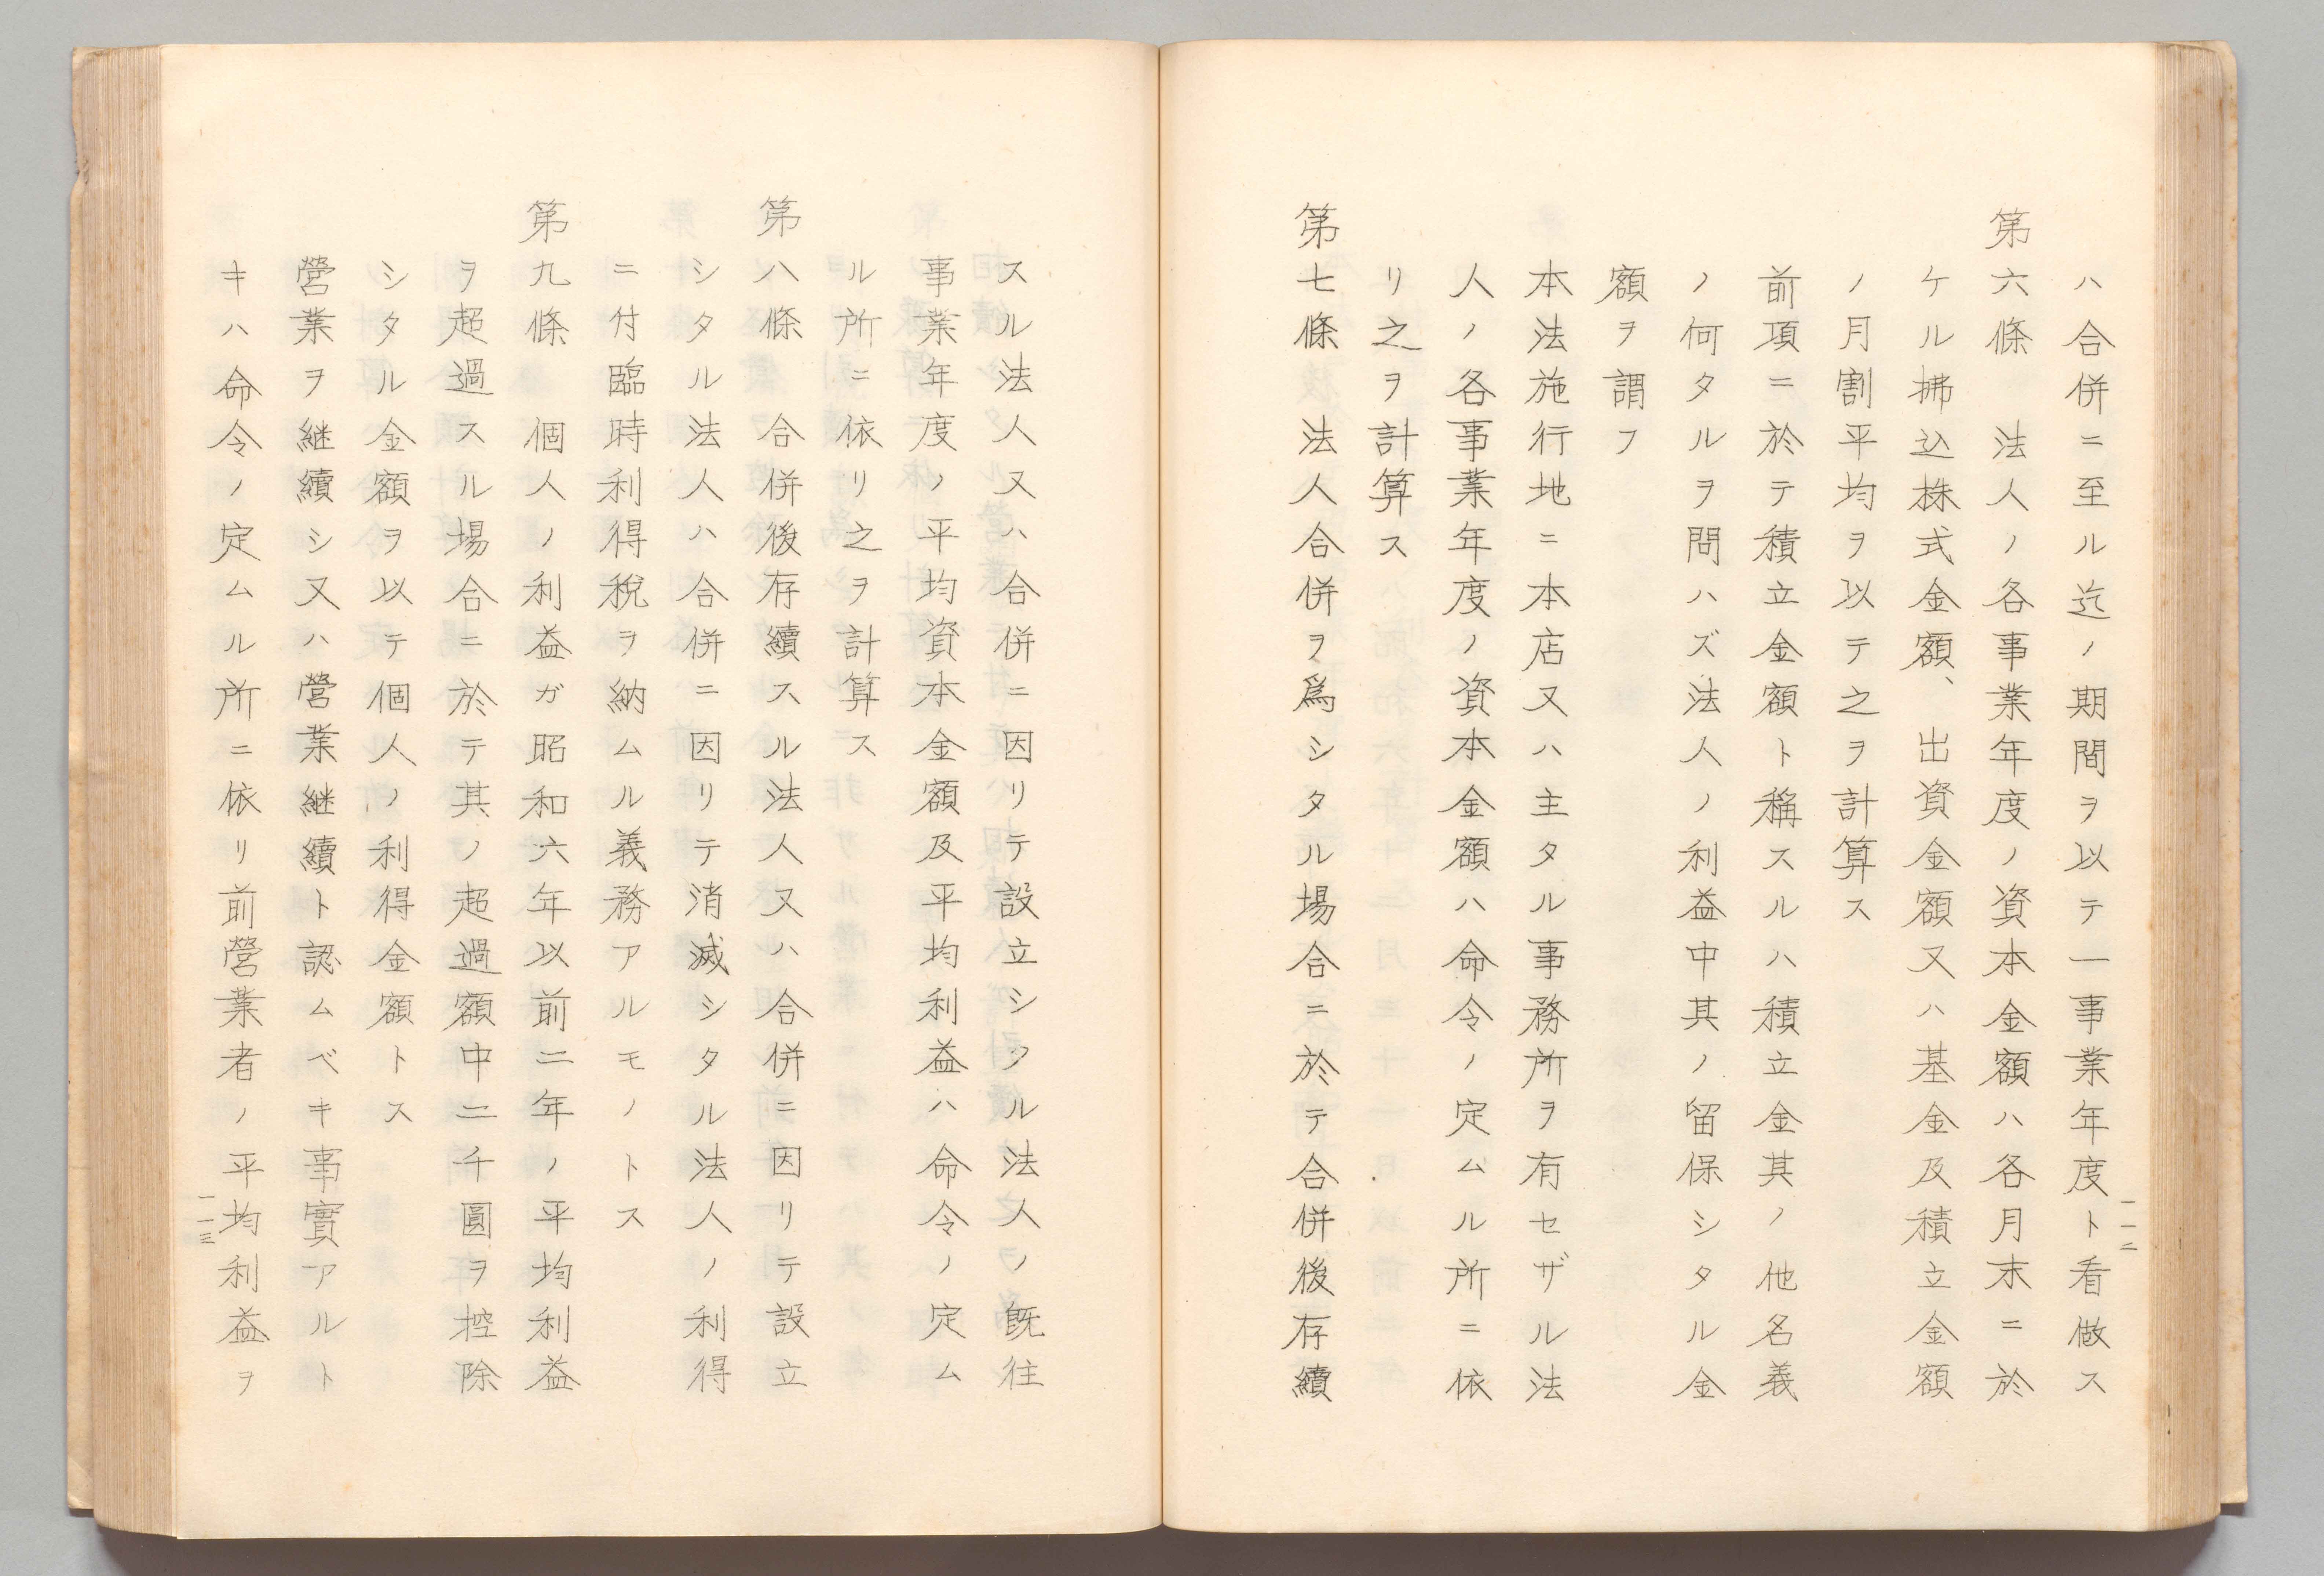 ハ合併ニ至ル迄ノ期間ヲ以テ一事業年度ト看做ス
第六條　法人ノ各事業年度ノ資本金額ハ各月末ニ於
ケル拂込株式金額、出資金額又ハ基金及積立金額
ノ月割平均ヲ以テ之ヲ計算ス
前項ニ於テ積立金額ト稱スルハ積立金其ノ他名義
ノ何タルヲ問ハズ法人ノ利益中其ノ留保シタル金
額ヲ謂フ
本法施行地ニ本店又ハ主タル事務所ヲ有セザル法
人ノ各事業年度ノ資本金額ハ命令ノ定ムル所ニ依
リ之ヲ計算ス
第七條　法人合併ヲ爲シタル場合ニ於テ合併後存續
一一二
スル法人又ハ合併ニ因リテ設立シタル法人ノ既往
事業年度ノ平均資本金額及平均利益ハ命令ノ定ム
ル所ニ依リ之ヲ計算ス
第八條　合併後存續スル法人又ハ合併ニ因リテ設立
シタル法人ハ合併ニ因リテ消滅シタル法人ノ利得
ニ付臨時利得税ヲ納ムル義務アルモノトス
第九條　個人ノ利益ガ昭和六年以前二年ノ平均利益
ヲ超過スル場合ニ於テ其ノ超過額中二千圓ヲ控除
シタル金額ヲ以テ個人ノ利得金額トス
營業ヲ継續シ又ハ營業継續ト認ムベキ事實アルト
キハ命令ノ定ムル所ニ依リ前營業者ノ平均利益ヲ
一一三